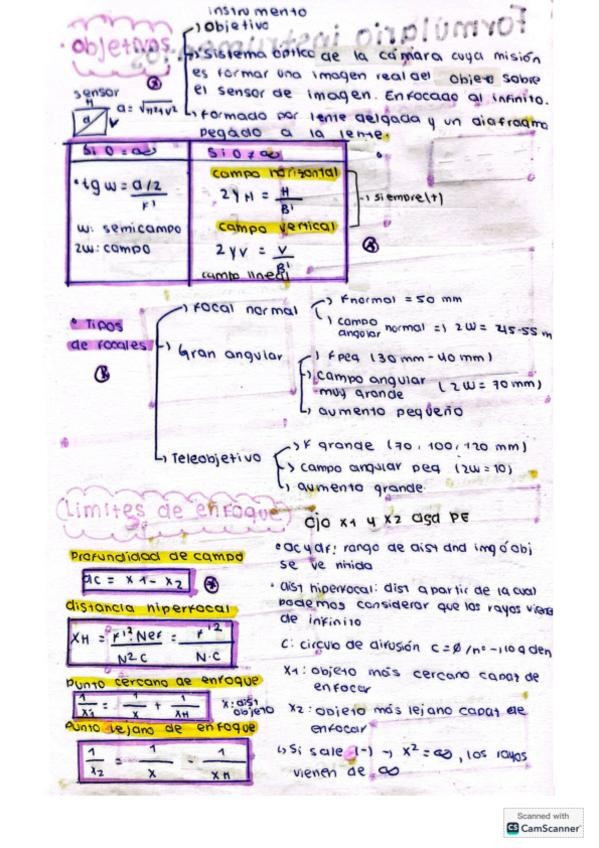 instrumento
• Objetivos
↳ Objetivo
↳ Sistema óptico de la cámara cuya misión
es formar una imagen real del objeto sobre
el sensor de imagen. Enfocado al infinito.
↳ Formado por lente delgada y un diafragma
pegado a la lente.
sensor
H
d
V
a = √H²+V²
Si O = ∞
• tg w = a/2 / F'
w: semicampo
2w: campo
Si O ≠ ∞
campo horizontal
2yH = H / B'
campo vertical
2yv = V / B'
campo lineal
↳ siempre (+)
• Tipos
de focales
↳ Focal normal
↳ Fnormal = 50 mm
↳ campo
angular normal => 2W = 45-55 m
↳ Gran angular
↳ F peq (30 mm - 40 mm)
↳ campo angular
muy grande
(2W = 70 mm)
↳ aumento pequeño
↳ Teleobjetivo
↳ F grande (70, 100, 120 mm)
↳ campo angular peq (2W = 10)
↳ aumento grande
Límites de enfoque
Ojo x1 y x2 dsd PE
Profundidad de campo
ac = x1 - x2
distancia hiperfocal
XH = F'² · Nef / N² · C = F'² / N · C
Punto cercano de enfoque
1/x1 = 1/x + 1/XH
x: dist
objeto
Punto lejano de enfoque
1/x2 = 1/x - 1/XH
• ac y df: rango de dist dnd img ó obj
se ve nítida
• dist hiperfocal: dist a partir de la cual
podemos considerar que los rayos viene
de infinito
C: circulo de difusión
x1: objeto más cercano capaz de
enfocar
x2: objeto más lejano capaz de
enfocar
↳ Si sale (-) → x² = ∞, los rayos
vienen de ∞
Scanned with
CS CamScanner